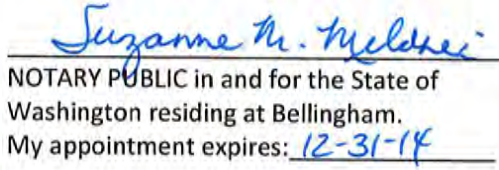 Suzanne M.
NOTARY PUBLIC in and for the State of
Washington residing at Bellingham.
My appointment expires: 12-31-14